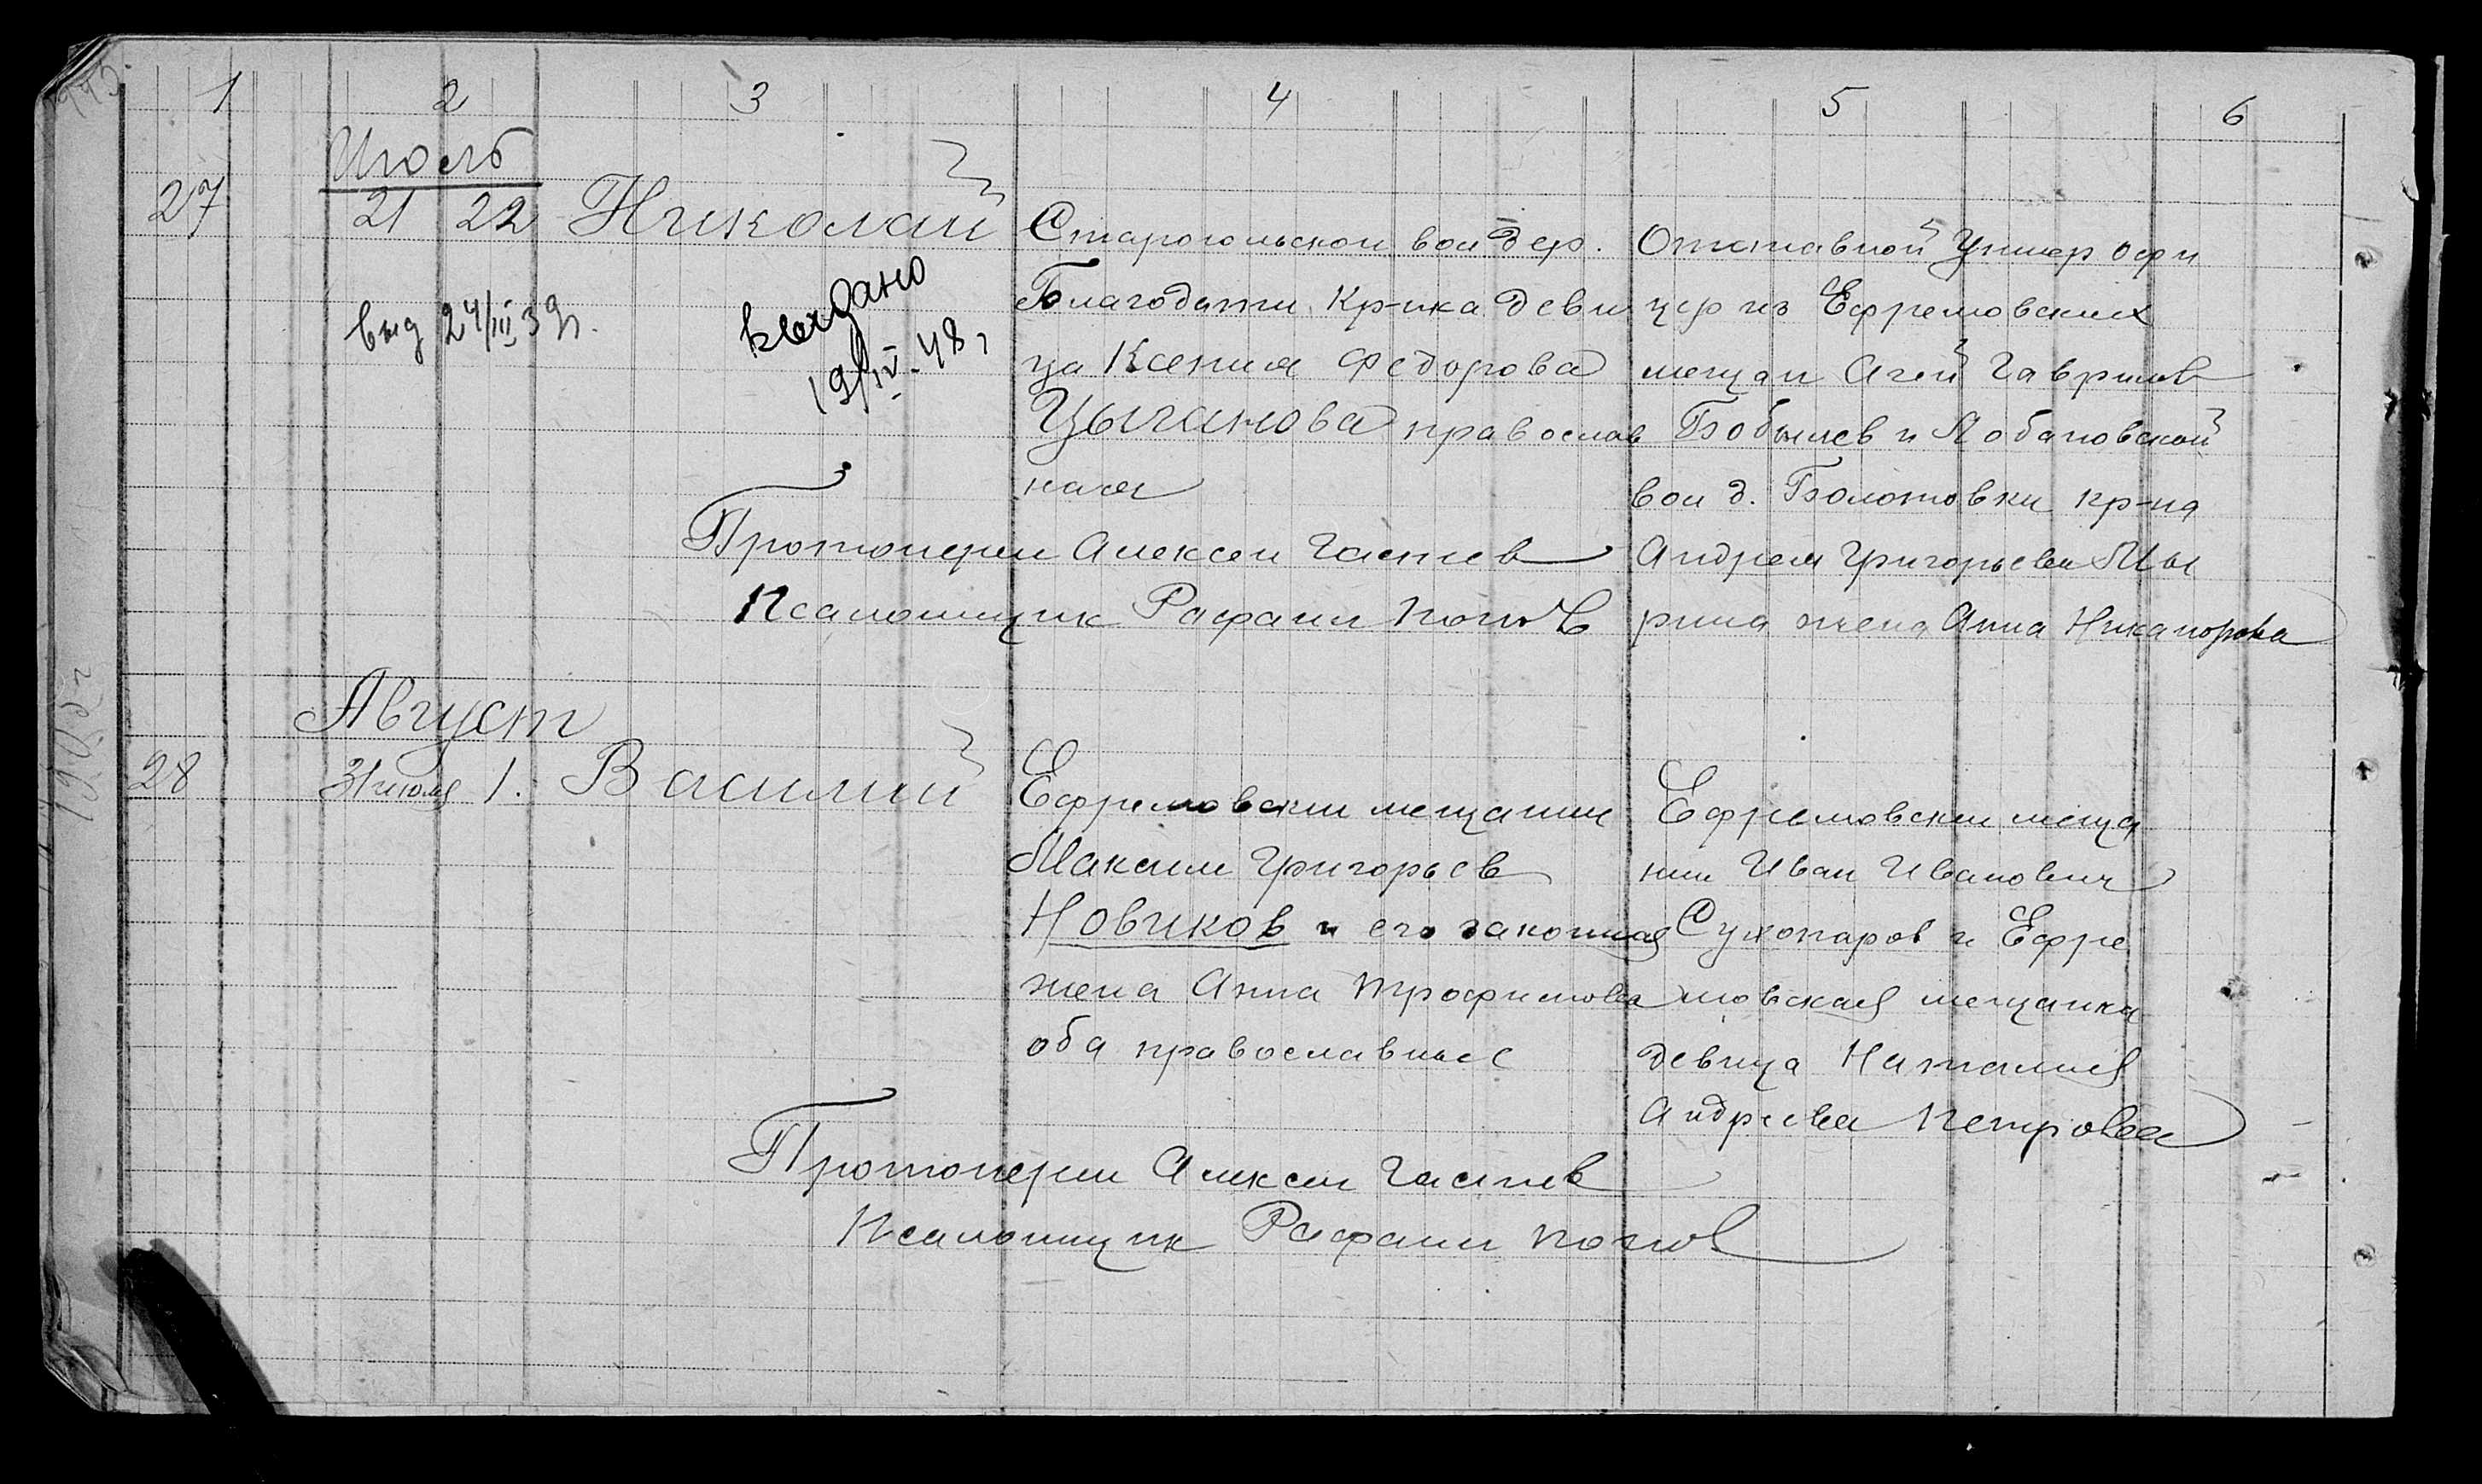 1 2 3 4 5 6
Июль
27 21 22 Николай
Старогольской вол дер.
Благодати Кр-нка деви
ца Ксения Федорова
Цыганова православ
ная
Отставной Унтер офи
цер из Ефремовских
мещан Агей Гаврилов
Бобылев и Лобановской
вол д. Болотовки кр-на
Андрея Григорьева Мы
рина жена Анна Никанорова
выд 24/III 39г.
выдано
19/IV-48г
Протоиереи Алексеи Гастев
Псаломщик Рафаил Попов
1905 г
Август
28 31 июля 1. Василий
Ефремовски мещанин
Максим Григорьев
Новиков и его законная
жена Анна Трофимова
оба православные
Ефремовски меща
нин Иван Иванович
Сухопаров и Ефре
мовская мещанка
девица Наталия
Андреева Петрова
Протоиереи Алексеи Гастев
Псаломщик Рафаил Попов